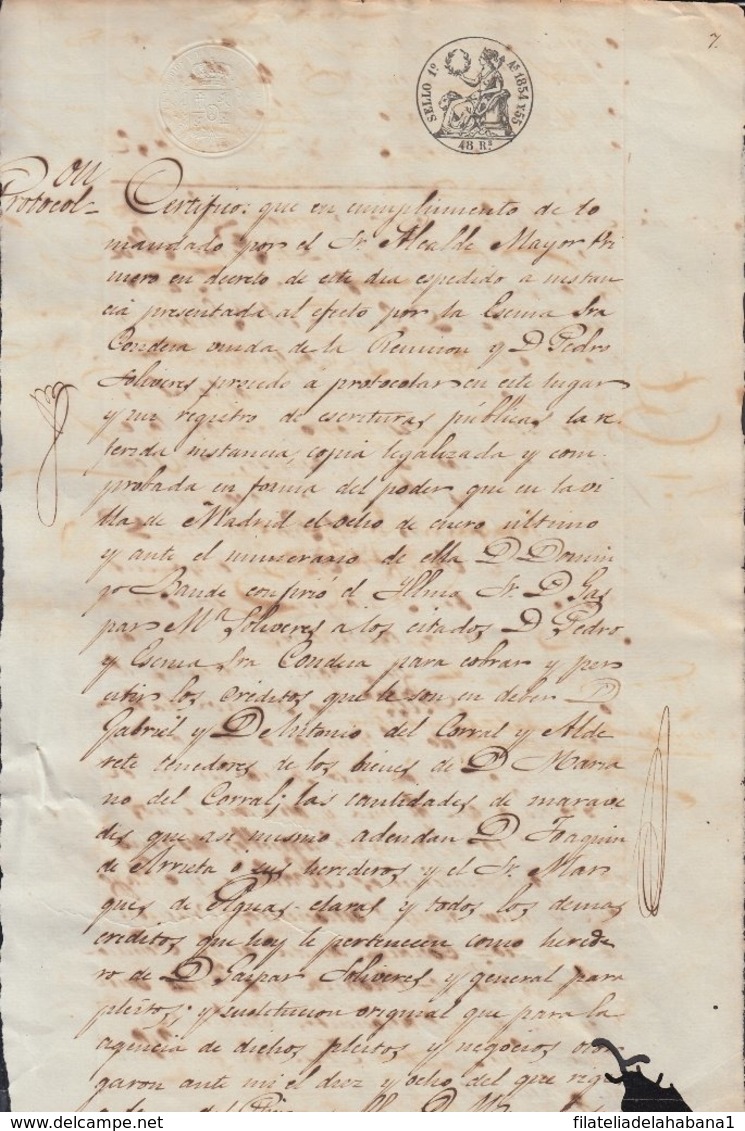 7.
SELLO 1º Aˢ 1854 Y 55
48 Rˢ
Protocol-
Certifico: que en cumplimiento de lo
mandado por el Sr. Alcalde Mayor Pri
mero en decreto de este dia espedido a instan
cia presentada al efecto por la Escma Sra
Condesa viuda de la Reunion y D Pedro
Soliveres procedo a protocolar en este lugar
y mi registro de escrituras públicas la re-
ferida instancia, copia legalizada y com-
probada en forma del poder que en la vi
lla de Madrid el ocho de enero ultimo
y ante el numerario de ella D Domin
go Bande confirió el Illmo Sr. D. Gas
par Mª Soliveres a los citados D Pedro
y Escma Sra Condesa para cobrar y per
cibir los créditos que le son en deber D
Gabriel y D Antonio del Corral y Alde
rete tenedores de los bienes de D Maria
no del Corral; las cantidades de marave
dis que asi mismo adeudan D Joaquin
de Arrieta ó sus herederos y el Sr. Mar
ques de Aguas-claras y todos los demas
creditos que hoy le pertenecen como herede
ro de D Gaspar Soliveres y general para
pleitos; y sustitucion original que para la
agencia de dichos pleitos y negocios otor
garon ante mi el diez y ocho del que rige
filateliadelahabana1